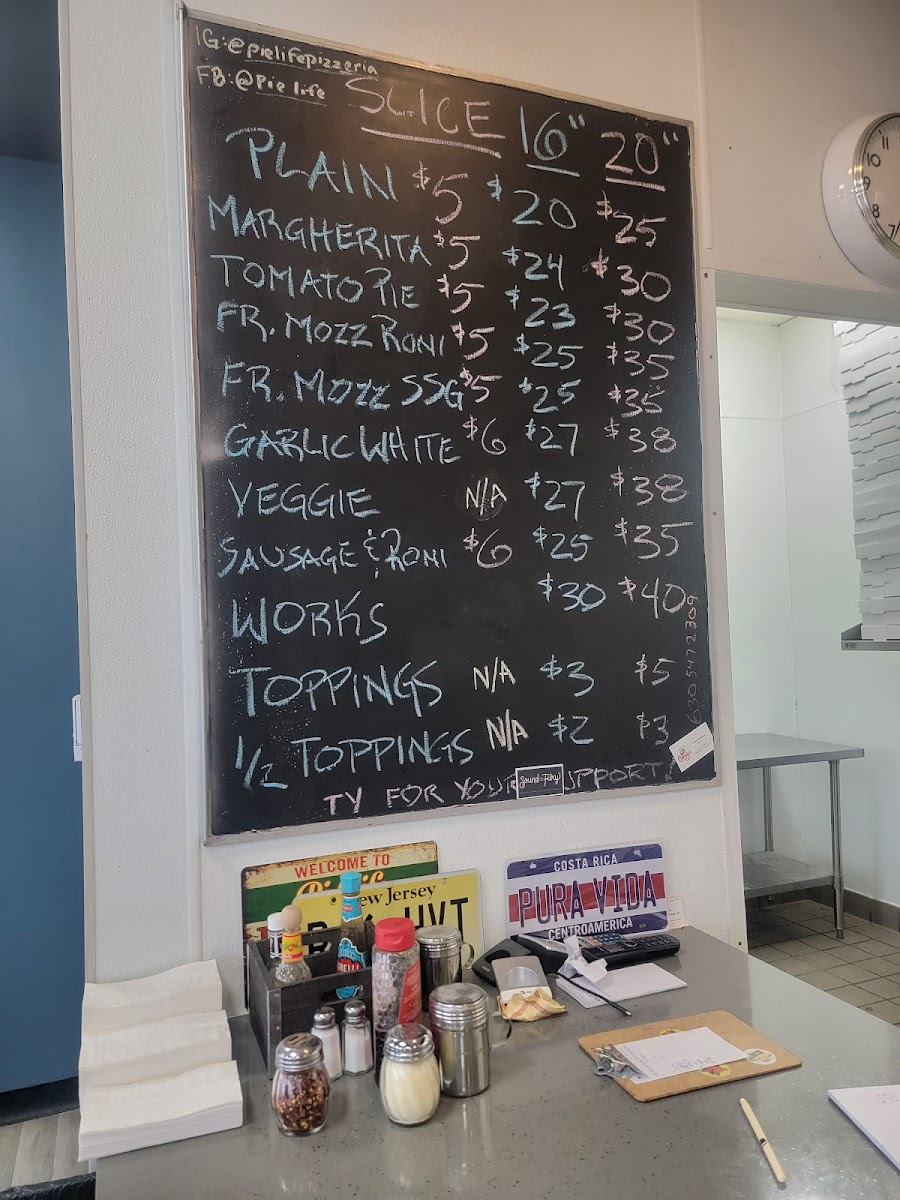 IG:@pielifepizzeria
FB:@Pie life
SLICE 16" 20"
PLAIN $5 $20 $25
MARGHERITA $5 $24 $30
TOMATO PIE $5 $23 $30
FR. MOZZ RONI $5 $25 $35
FR. MOZZ SSG $5 $25 $35
GARLIC WHITE $6 $27 $38
VEGGIE N/A $27 $38
SAUSAGE & RONI $6 $25 $35
WORKS $30 $40
TOPPINGS N/A $3 $5
1/2 TOPPINGS N/A $2 $3
TY FOR YOUR SUPPORT!
630 547 2309
Sound & Fury
10
9
8
7
WELCOME TO
New Jersey
COSTA RICA
PURA VIDA
CENTROAMERICA